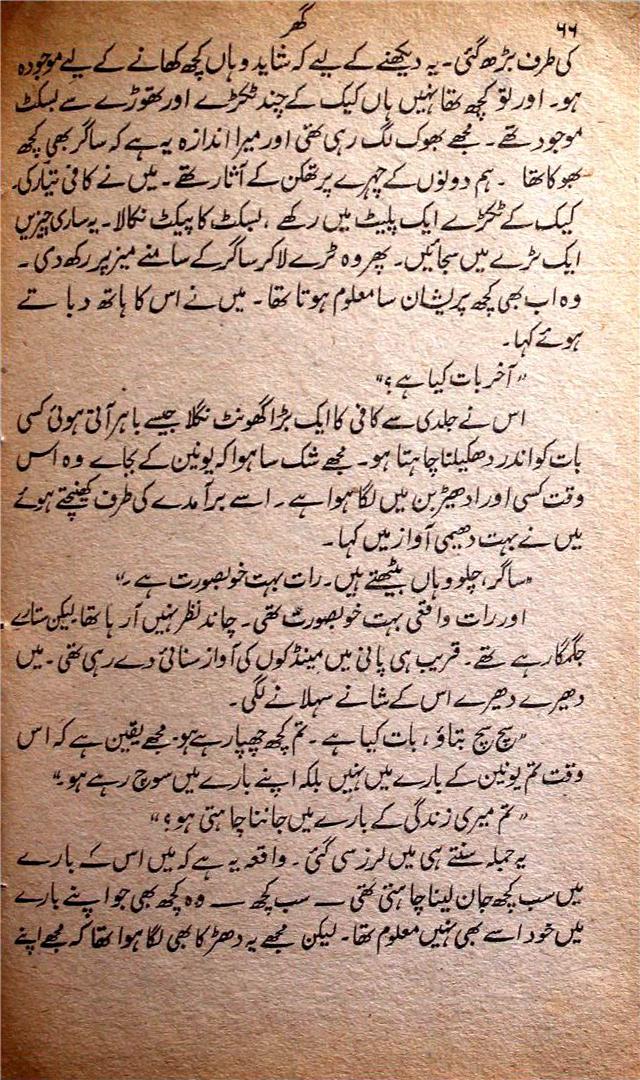 ۶۶
گھر
کی طرف بڑھ گئی۔ یہ دیکھنے کے لیے کہ شاید وہاں کچھ کھانے کے لیے موجودہ
ہو۔ اور تو کچھ تھا نہیں ہاں کیک کے چند ٹکڑے اور تھوڑے سے بسکٹ
موجود تھے۔ مجھے بھوک لگ رہی تھی اور میرا اندازہ یہ ہے کہ ساگر بھی کچھ
بھوکا تھا۔ ہم دونوں کے چہرے پر تھکن کے آثار تھے۔ میں نے کافی تیار کی۔
کیک کے ٹکڑے ایک پلیٹ میں رکھے، بسکٹ کا پیکٹ نکالا۔ یہ ساری چیزیں
ایک ٹرے میں سجائیں۔ پھر وہ ٹرے لاکر ساگر کے سامنے میز پر رکھ دی۔
وہ اب بھی کچھ پریشان سا معلوم ہوتا تھا۔ میں نے اس کا ہاتھ دباتے
ہوئے کہا۔
"آخر بات کیا ہے؟"
اس نے جلدی سے کافی کا ایک بڑا گھونٹ نگلا جیسے باہر آتی ہوئی کسی
بات کو اندر دھکیلنا چاہتا ہو۔ مجھے شک سا ہوا کہ یونین کے بجائے وہ اس
وقت کسی اور ادھیڑبن میں لگا ہوا ہے۔ اسے برآمدے کی طرف کھینچتے ہوئے
میں نے بہت دھیمی آواز میں کہا۔
"ساگر، چلو وہاں بیٹھتے ہیں۔ رات بہت خوبصورت ہے۔"
اور رات واقعی بہت خوبصورت تھی۔ چاند نظر نہیں آ رہا تھا لیکن ستارے
جگمگا رہے تھے۔ قریب ہی پانی میں مینڈکوں کی آواز سنائی دے رہی تھی۔ میں
دھیرے دھیرے اس کے شانے سہلانے لگی۔
"سچ سچ بتاؤ، بات کیا ہے۔ تم کچھ چھپا رہے ہو۔ مجھے یقین ہے کہ اس
وقت تم یونین کے بارے میں نہیں بلکہ اپنے بارے میں سوچ رہے ہو۔"
"تم میری زندگی کے بارے میں جاننا چاہتی ہو؟"
یہ جملہ سنتے ہی میں لرز سی گئی۔ واقعہ یہ ہے کہ میں اس کے بارے
میں سب کچھ جان لینا چاہتی تھی — سب کچھ — وہ کچھ بھی جو اپنے بارے
میں خود اسے بھی نہیں معلوم تھا۔ لیکن مجھے یہ دھڑکا بھی لگا ہوا تھا کہ مجھے اپنے